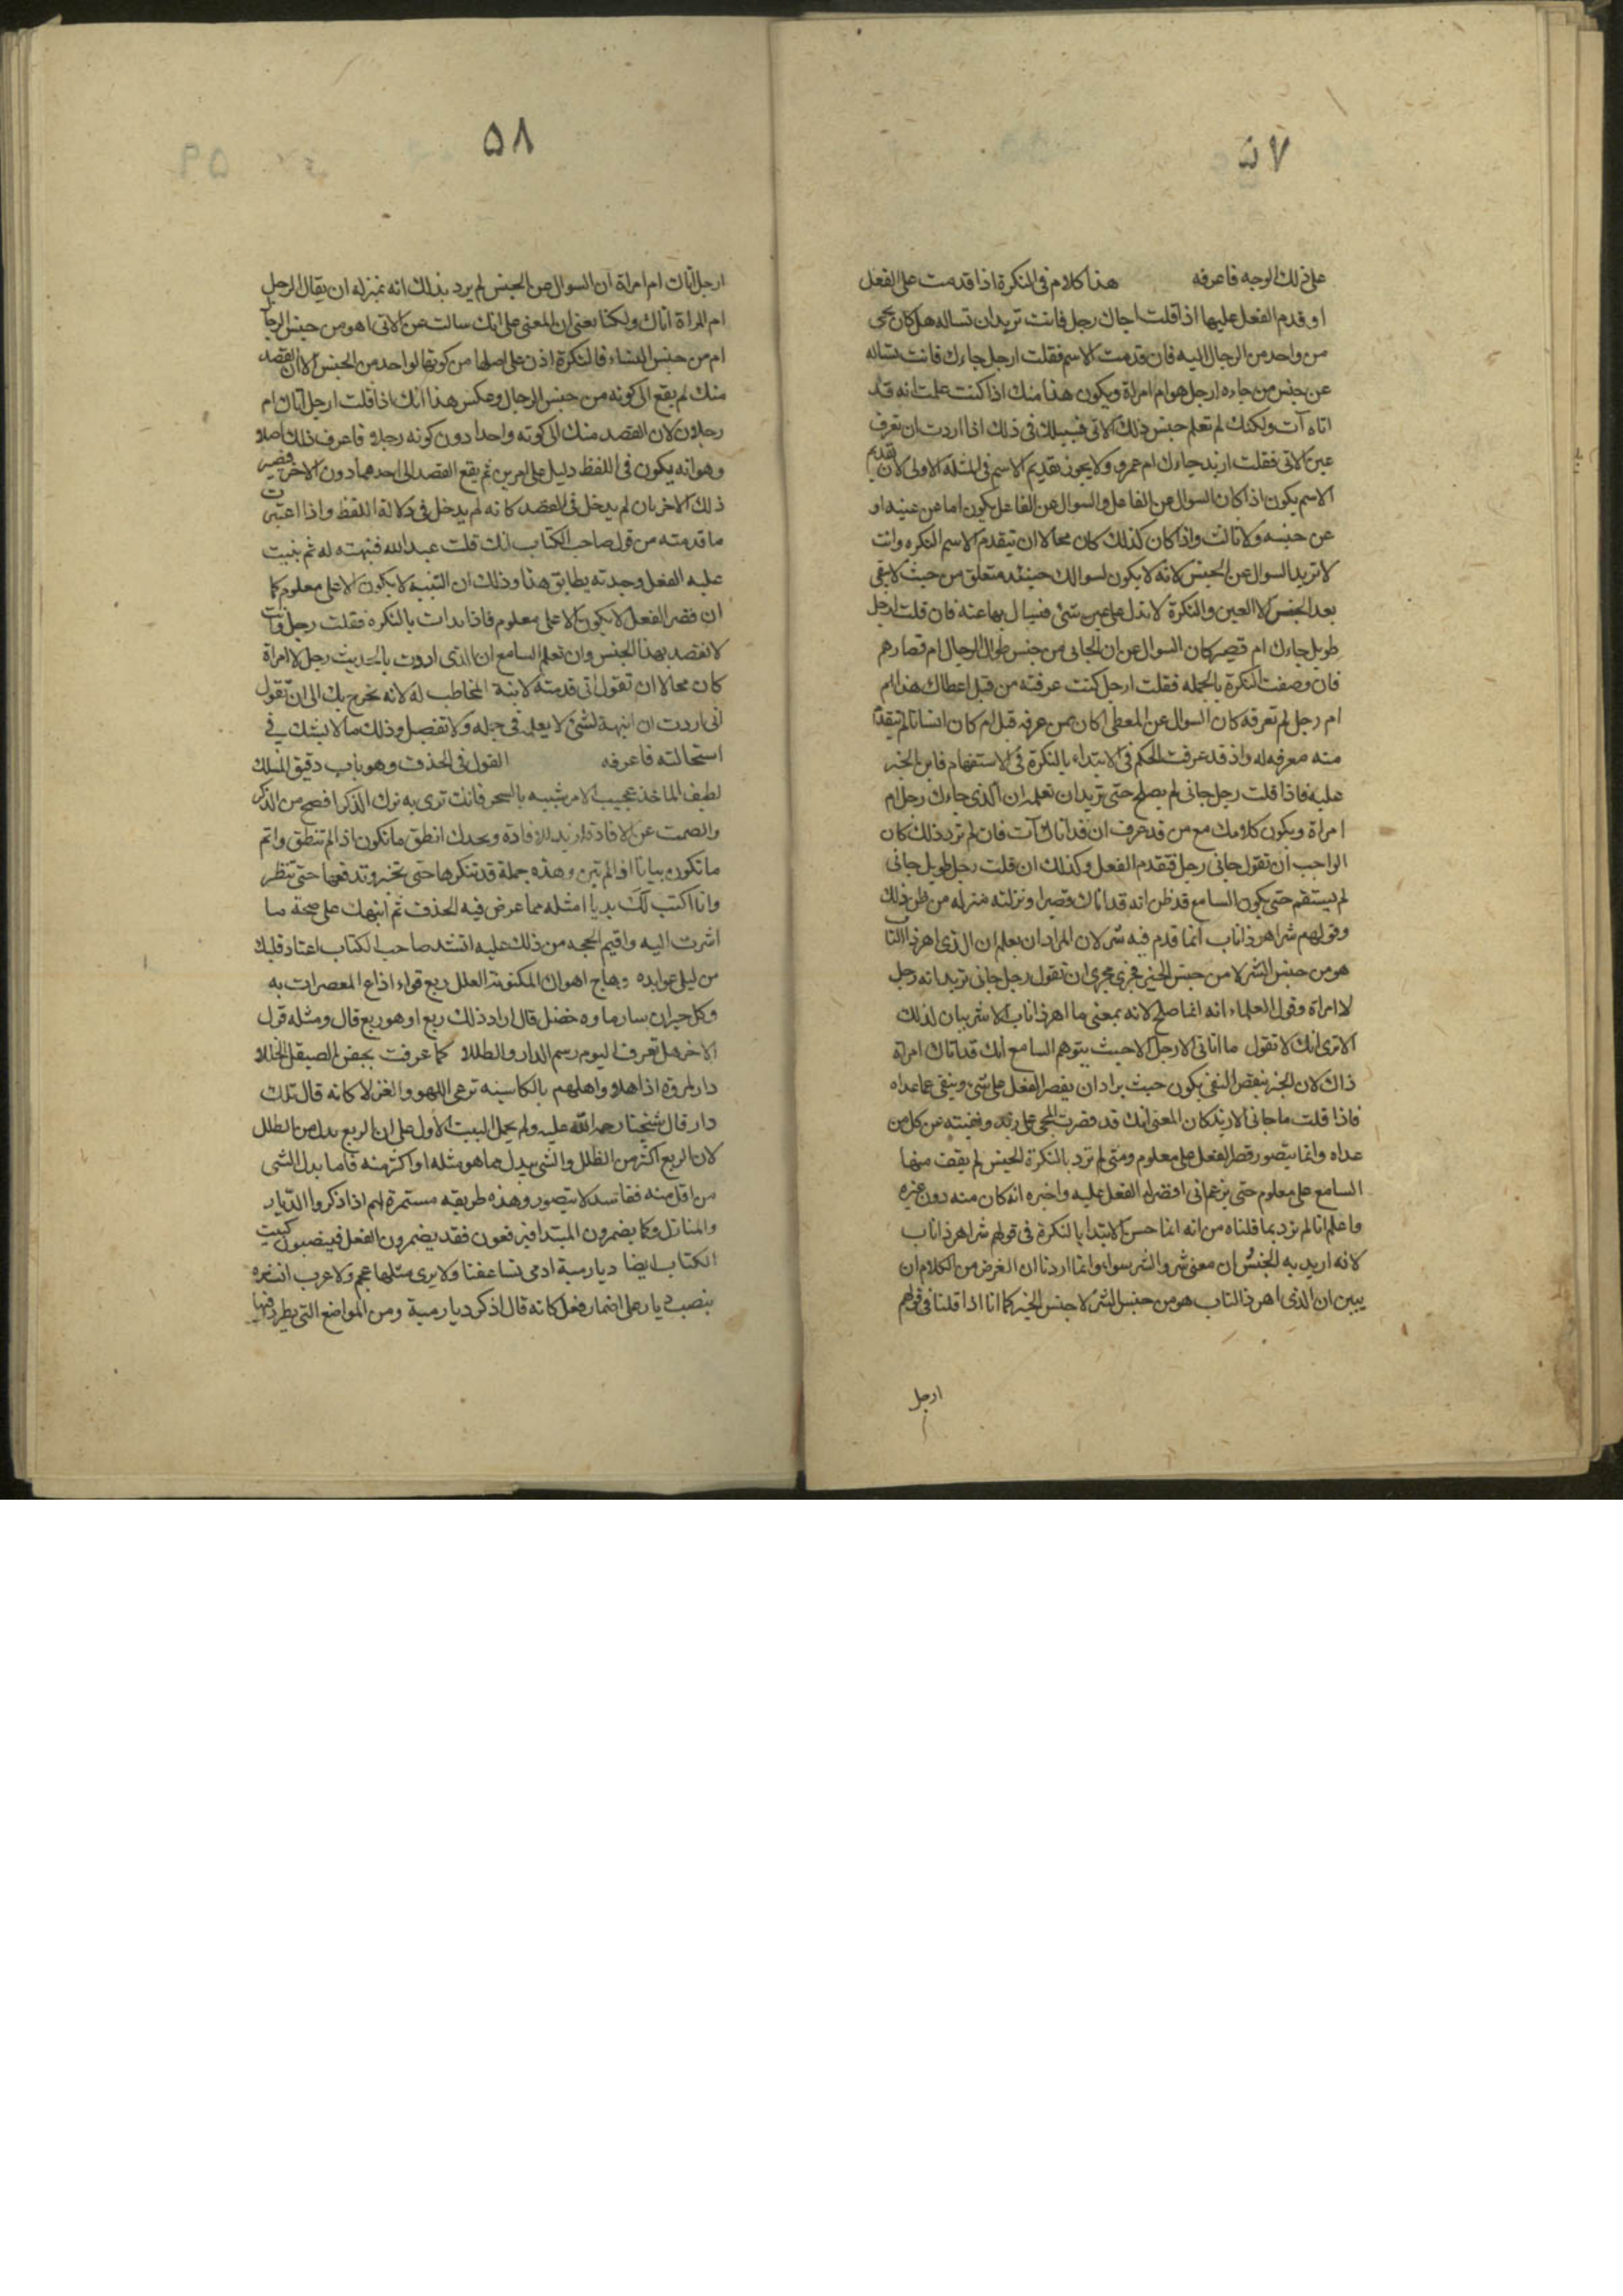 ۵۷
على ذلك الوجه فاعرفه هذا كلام فى النكرة اذا قدمت على الفعل
او قدم الفعل عليها اذا قلت اجاك رجل فانت تريد ان تساله هل كان مجى
من واحد من الرجال اليه فان قدمت الاسم فقلت ارجل جاءك فانت تساله
عن جنس من جاءه ارجل هو ام امراة ويكون هذا منك اذا كنت علمت انه قد
اتاه آت ولكنك لم تعلم جنس ذلك الاتى فسبيلك فى ذلك اذا اردت ان تعرف
عين الاتى فقلت ازيد جاءك ام عمرو ولا يجوز تقديم الاسم فى المثلة الاولى لان تقديم
الاسم يكون اذا كان السوال عن الفاعل والسوال عن الفاعل يكون اما عن عينه او
عن جنسه ولا ثالث واذا كان كذلك كان محالا ان تتقدم الاسم النكره وانت
لا تريد السوال عن الجنس لانه لا يكون لسوالك حينئذ متعلق من حيث لا يبقى
بعد الجنس الا العين والنكرة لا تدل على عين شئ فيسال بها عنه فان قلت ارجل
طويل جاءك ام قصير كان السوال عن ان الجائى من جنس طوال الرجال ام قصارهم
فان وصفت النكرة بالجمله فقلت ارجل كنت عرفته من قبل اعطاك هذا ام
ام رجل لم تعرفه كان السوال عن المعطى اكان ممن عرفه قبل ام كان انسانا لم تتقدم
منه معرفه له واذ قد عرفت الحكم فى الابتداء بالنكرة فى الاستفهام فابن الخبر
عليه فاذا قلت رجل جانى لم يصلح حتى تريد ان تعلمه ان الذى جاءك رجل لا
امراة ويكون كلامك مع من قد عرف ان قد اتاك آت فان لم ترد ذلك كان
الواجب ان تقول جانى رجل فتقدم الفعل وكذلك ان قلت رجل طويل جانى
لم يستقم حتى يكون السامع قد ظن انه قد اتاك قصير او نزلته منزله من ظن ذلك
وقولهم شر اهر ذا ناب انما قدم فيه شر لان المراد ان يعلم ان الذى اهر ذا الناب
هو من جنس الشر لا من جنس الخير فجرى مجرى ان تقول رجل جانى تريد انه رجل
لا امراة وقول العلماء انه انما صلح لانه بمعنى ما اهر ذا ناب الا شر بيان لذلك
الا ترى انك لا تقول ما اتانى الا رجل الا حيث يتوهم السامع انك قد اتاك امراة
ذاك لان الخبر بنقض النفى يكون حيث يراد ان يقصر الفعل على شئ وينفى عما عداه
فاذا قلت ما جانى الا زيد كان المعنى انك قد قصرت المجى على زيد ونفيته عن كل من
عداه وانما يتصور قصر الفعل على معلوم ومتى لم ترد بالنكرة الجنس لم يقف منها
السامع على معلوم حتى يزعم انى اقصر له الفعل عليه واخبره انه كان منه دون غيره
واعلم انا لم نرد بما قلناه من انه انما حسن الابتدا بالنكرة فى قولهم شر اهر ذا ناب
لانه اريد به الجنس ان معنى شر والشر سواء وانما اردنا ان الغرض من الكلام ان
يبين ان الذى اهر ذا الناب هو من جنس الشر لا جنس الخير كما انا اذا قلنا فى قولهم
ارجل
۵۸
ارجل اتاك ام امراة ان السوال عن الجنس لم يرد بذلك انه بمنزله ان يقال الرجل
ام المراة اتاك ولكنا نعنى ان المعنى على انك سالت عن الاتى اهو من جنس الرجال
ام من جنس النساء فالنكرة اذن على اصلها من كونها لواحد من الجنس الا ان القصد
منك لم يقع الى كونه من جنس الرجال وعكس هذا انك اذا قلت ارجل اتاك ام
رجلان كان القصد منك الى كونه واحدا دون كونه رجلا فاعرف ذلك اصلا
وهو انه يكون فى اللفظ دليل على امرين ثم يقع القصد الى احدهما دون الاخر فيصير
ذلك الاخر بان لم يدخل فى القصد كانه لم يدخل فى دلالة اللفظ واذا اعتبرت
ما قدمته من قول صاحب الكتاب انك قلت عبد الله فنبهته له ثم بنيت
عليه الفعل وجدته يطابق هذا وذلك ان التنبيه لا يكون الا على معلوم كما
ان قصر الفعل لا يكون الا على معلوم فاذا بدات بالنكره فقلت رجل وانت
لا تقصد بهذا الجنس وان تعلم السامع ان الذى اردت بالحديث رجل لا امراة
كان محالا ان تقول انى قدمته لانبه المخاطب له لانه يخرج بك الى ان تقول
انى اردت ان انبهه لشئ لا يعلمه فى جمله ولا تفصيل وذلك ما لا يشك فى
استحالته فاعرفه القول فى الحذف وهو باب دقيق المسلك
لطيف الماخذ عجيب الامر شبيه بالسحر فانك ترى به ترك الذكر افصح من الذكر
والصمت عن الافادة ازيد للافادة وتجدك انطق ما تكون اذا لم تنطق واتم
ما تكون بيانا اذا لم تبن وهذه جملة قد تنكرها حتى تخبر وتدفعها حتى تنظر
وانا اكتب لك بديا امثله مما عرض فيه الحذف ثم انبهك على صحة ما
اشرت اليه واقيم الحجه من ذلك عليه انشد صاحب الكتاب اعتاد قلبك
من ليلى عوايده وهاج اهواك المكنونة الطلل ربع قواء اذاع المعصرات به
وكل حيران سار ماوه خضل قال اراد ذلك ربع او هو ربع قال ومثله قول
الاخر هل تعرف اليوم رسم الدار والطللا كما عرفت بجفن الصيقل الخللا
دار لمروة اذ اهلى واهلهم بالكاسيه ترعى اللهو والغزلا كانه قال تلك
دار قال شيخنا رحمه الله عليه ولم يحمل البيت الاول على ان الربع بدل من الطلل
لان الربع اكثر من الطلل والشى يبدل مما هو مثله او اكثر منه فاما بدل الشى
من اقل منه ففاسد لا يتصور وهذه طريقه مستمرة لهم اذا ذكروا الديار
والمنازل وكما يضمرون المبتدا فيرفعون فقد يضمرون الفعل فينصبون كبيت
الكتاب ايضا ديار مية اذ مى تساعفنا ولا يرى مثلها عجم ولا عرب انشده
بنصب ديار على اضمار فعل كانه قال اذكر ديار مية ومن المواضع التى يطرد فيها